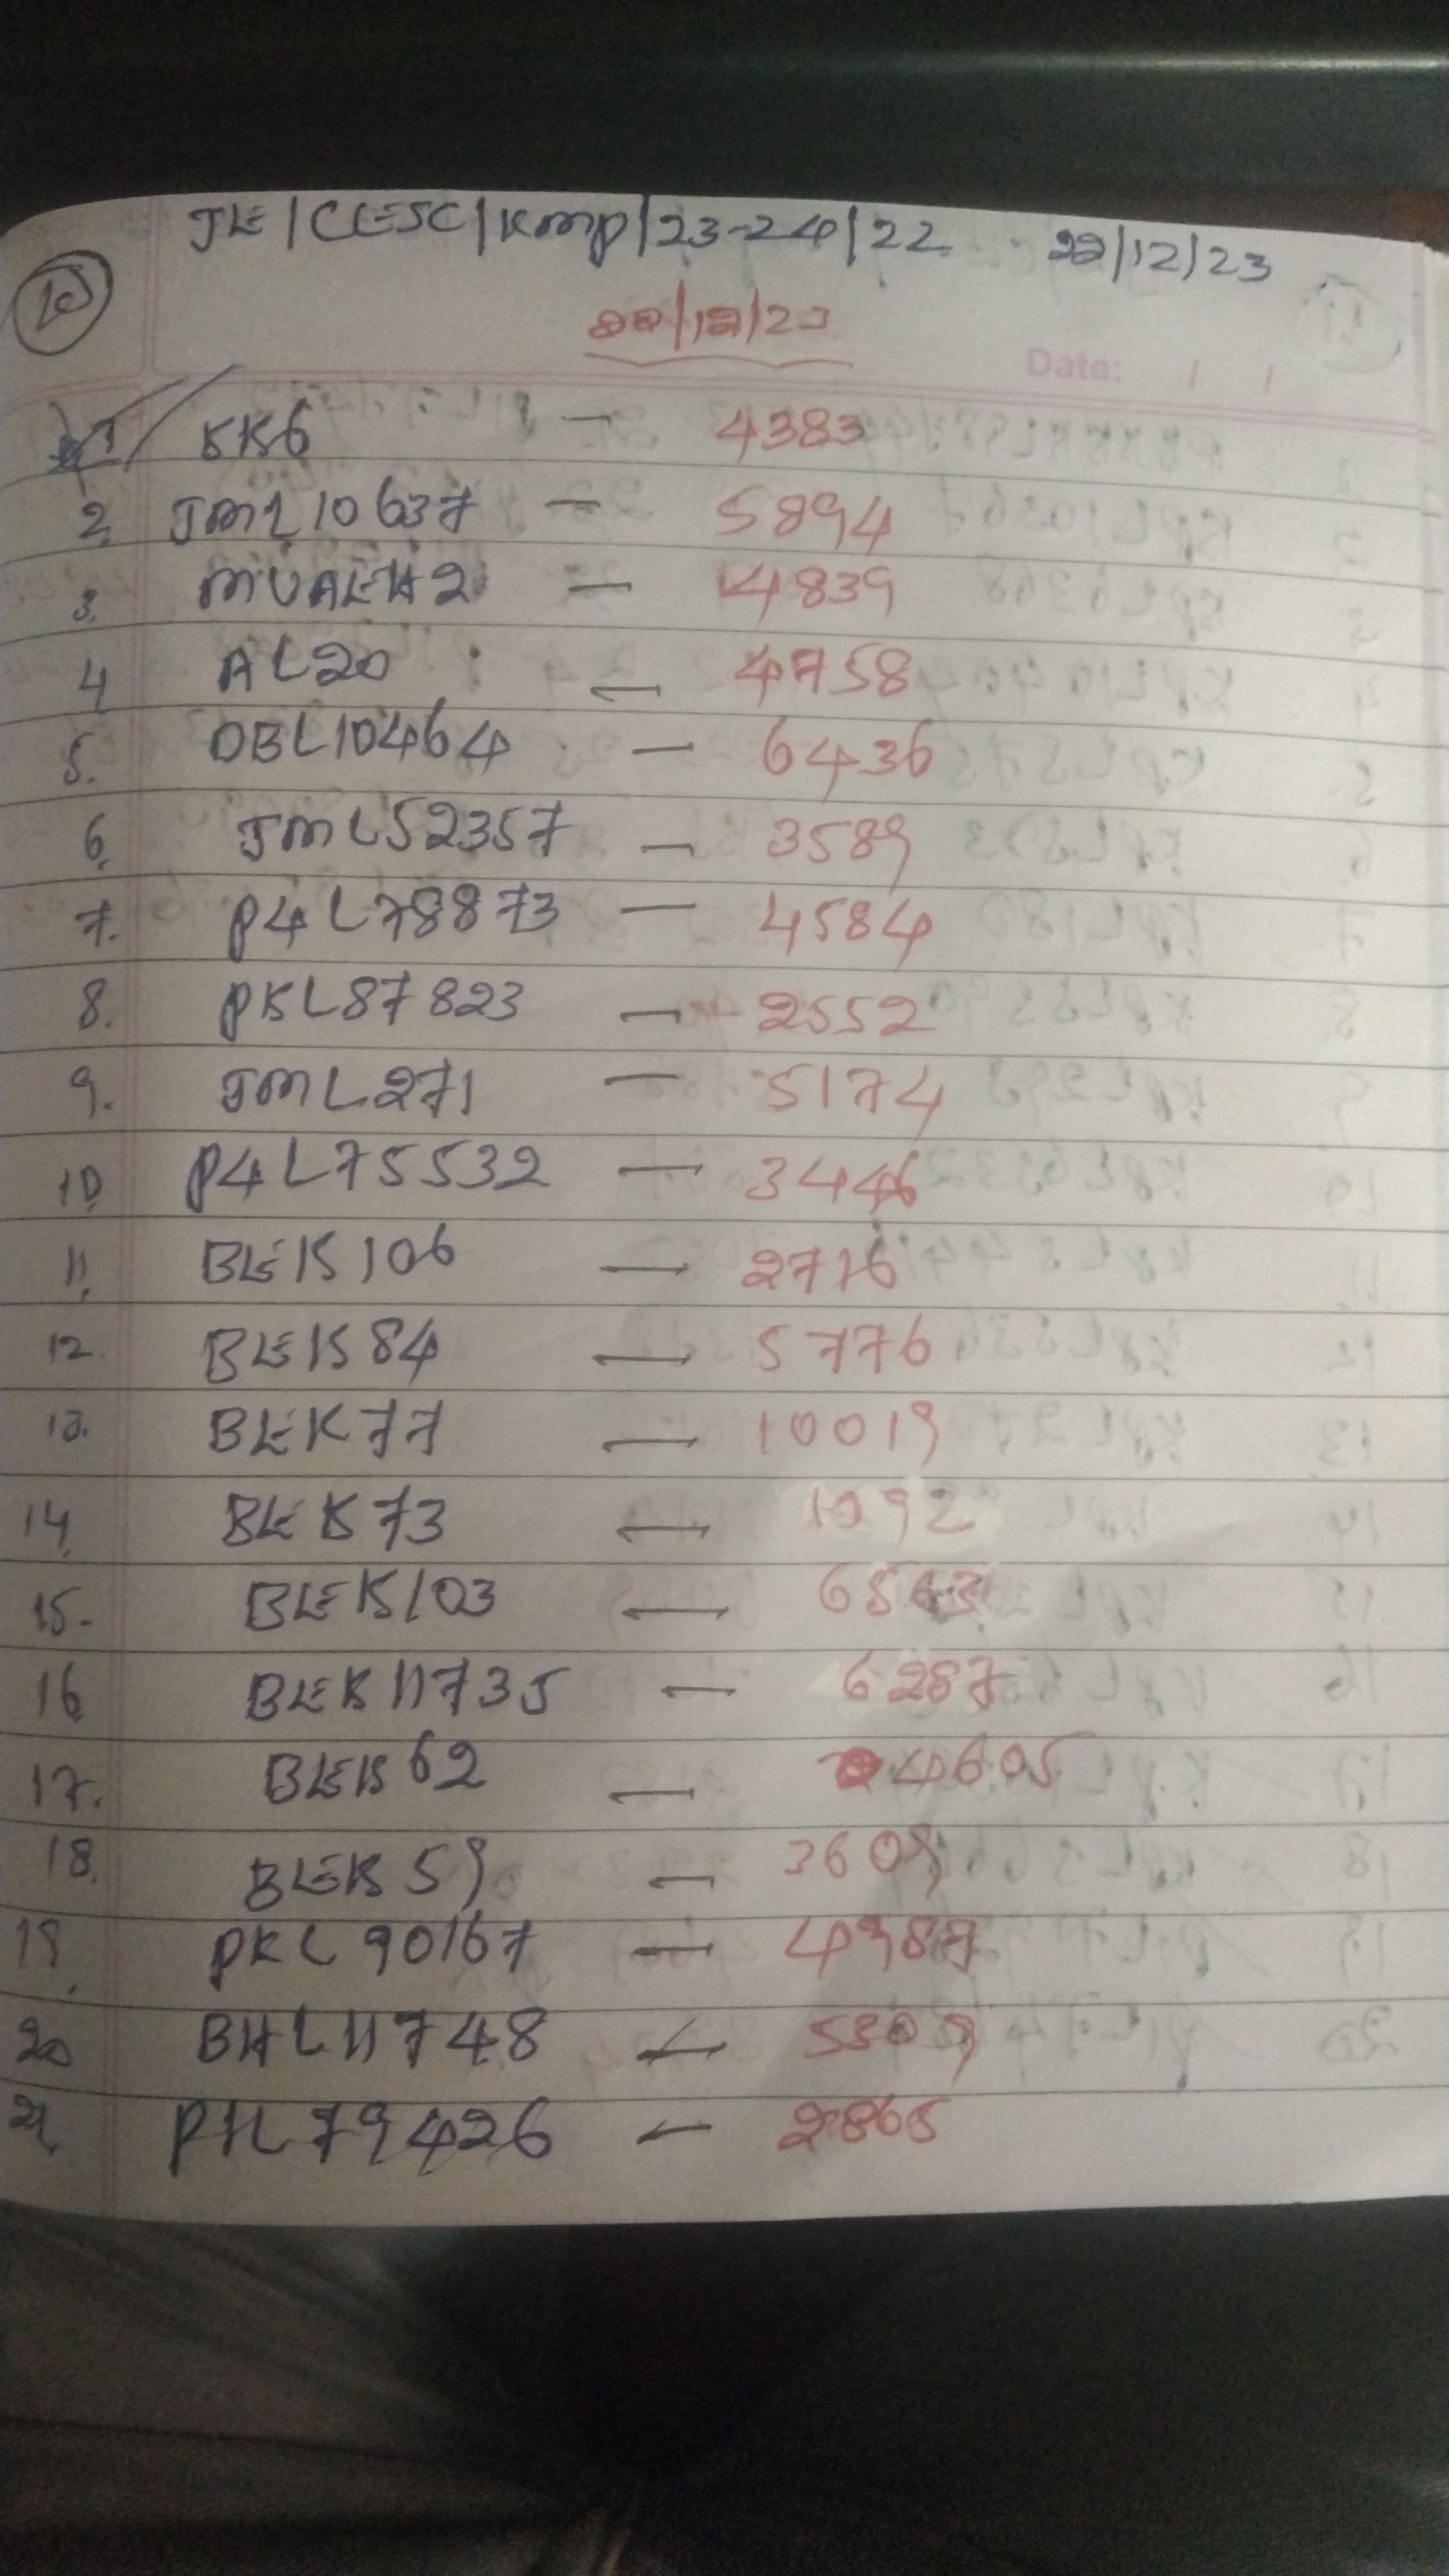 JE/CESC/KMP/23-24/22 22/12/23
10
22/12/23
Date: / /
1 KK6 - 4383
2 JML10637 - 5894
3. MUAEH2 - 4839
4 AL20 - 4758
5. DBL10464 - 6436
6. JML52357 - 3589
7. P4L78873 - 4584
8. PKL87823 - 2552
9. JML271 - 5174
10 P4L75532 - 3446
11. BEK106 - 2776
12. BEK84 - 5776
13. BEK77 - 10019
14. BEK73 - 1092
15. BEK103 - 6563
16 BEK11735 - 6287
17. BEK62 - 4605
18. BEK59 - 3609
19. PKL90167 - 4987
20 BHL11748 - 5309
21. PHL79426 - 2865